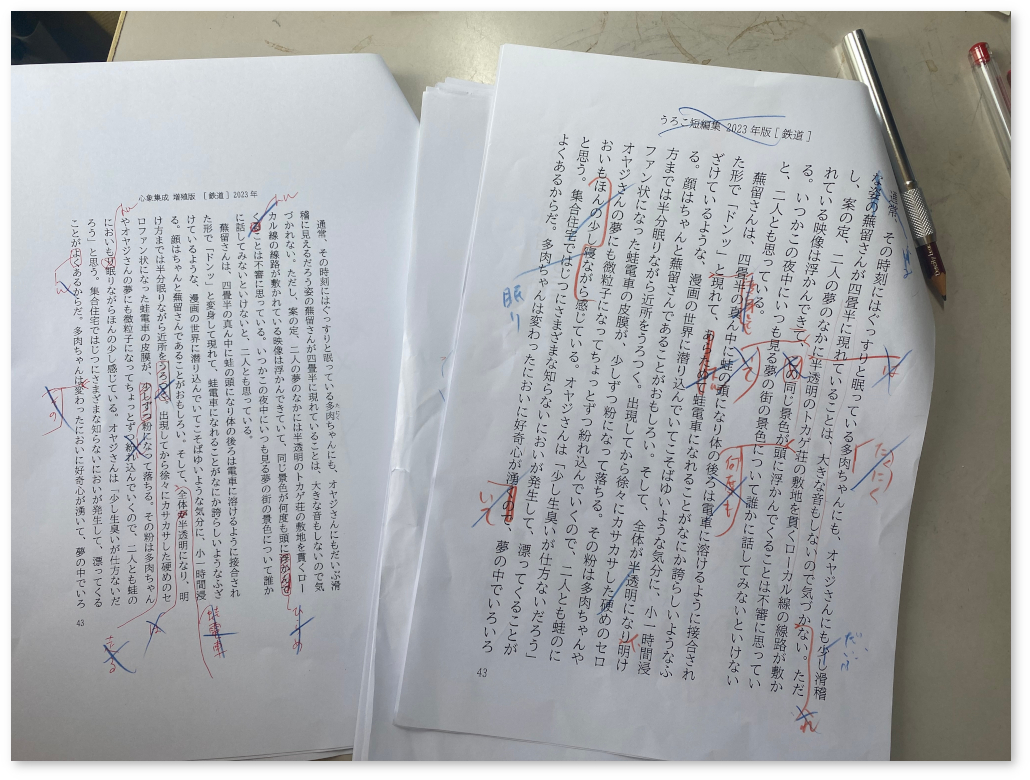 うろこ短編集 2023年版[鉄道]
通常、その時刻にはぐっすりと眠っている多肉ちゃんにも、オヤジさんにも少し滑稽
な姿の蕪留さんが四畳半に現れていることは、大きな音もしないので気づかない。ただ
し、案の定、二人の夢のなかに半透明のトカゲ荘の敷地を貫くローカル線の線路が敷か
れている映像は浮かんできて、同じ景色が頭に浮かんでくることは不審に思ってい
る。いつかこの夜中にいつも見る夢の街の景色について誰かに話してみないといけない
と、二人とも思っている。
蕪留さんは、四畳半の真ん中に蛙の頭になり体の後ろは電車に溶けるように接合され
た形で「ドンッ」と現れて、蛙電車になれることがなにか誇らしいようなふ
ざけているような、漫画の世界に潜り込んでいてこそばゆいような気分に、小一時間浸
る。顔はちゃんと蕪留さんであることがおもしろい。そして、全体が半透明になり明け
方までは半分眠りながら近所をうろつく。出現してから徐々にカサカサした硬めのセロ
ファン状になった蛙電車の皮膜が、少しずつ粉になって落ちる。その粉は多肉ちゃんや
オヤジさんの夢にも微粒子になってちょっとずつ紛れ込んでいくので、二人とも蛙のに
おいもほんの少し寝ながら感じている。オヤジさんは「少し生臭いが仕方ないだろう」
と思う。集合住宅ではじつにさまざまな知らないにおいが発生して、漂ってくることが
よくあるからだ。多肉ちゃんは変わったにおいに好奇心が湧くので、夢の中でいろいろ
43
だいぶ
たくにく
何度も
眠り
いて
心象集成 増殖版 [鉄道]2023年
通常、その時刻にはぐっすりと眠っている多肉ちゃんにも、オヤジさんにもだいぶ滑
稽に見えるだろう姿の蕪留さんが四畳半に現れていることは、大きな音もしないので気
づかれない。ただし、案の定、二人の夢のなかには半透明のトカゲ荘の敷地を貫くロー
カル線の線路が敷かれている映像は浮かんできていて、同じ景色が何度も頭に浮かんで
くることは不審に思っている。いつかこの夜中にいつも見る夢の街の景色について誰か
に話してみないといけないと、二人とも思っている。
蕪留さんは、四畳半の真ん中に蛙の頭になり体の後ろは電車に溶けるように接合され
た形で「ドンッ」と変身して現れて、蛙電車になれることがなにか誇らしいようなふざ
けているような、漫画の世界に潜り込んでいてこそばゆいような気分に、小一時間浸
る。顔はちゃんと蕪留さんであることがおもしろい。そして、全体が半透明になり、明
け方までは半分眠りながら近所をうろつき、出現してから徐々にカサカサした硬めのセ
ロファン状になった蛙電車の皮膜が、少しずつ粉になって落ちる。その粉は多肉ちゃん
やオヤジさんの夢にも微粒子になってちょっとずつ紛れ込んでいくので、二人とも蛙の
においも眠りながらほんの少し感じている。オヤジさんは「少し生臭いが仕方ないだ
ろう」と思う。集合住宅ではじつにさまざまな知らないにおいが発生して、漂ってくる
ことがよくあるからだ。多肉ちゃんは変わったにおいに好奇心が湧いて、夢の中でいろ
43